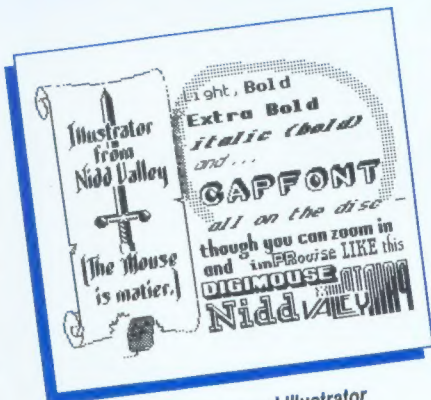 Illustrator
from
Nidd Valley
(The Mouse
is matier.)
Light, Bold
Extra Bold
italic (bold)
and...
CAPFONT
all on the disc –
though you can zoom in
and imPRovise LIKE this
DIGIMOUSE
Nidd VALLEY
Illustrator